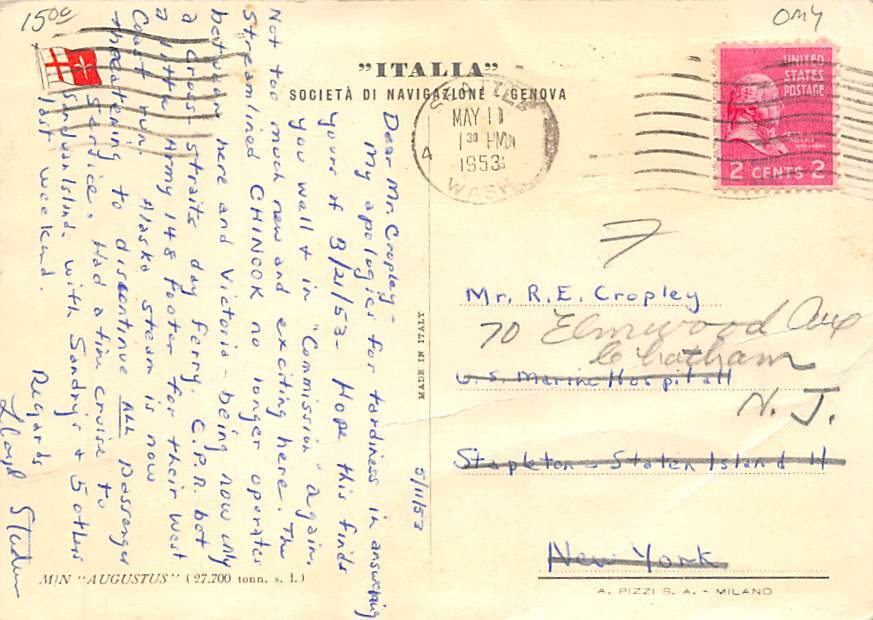 15.00
OMY
"ITALIA"
SOCIETÀ DI NAVIGAZIONE GENOVA
SEATTLE
4
MAY 11
1 30 PM
1953
WASH.
UNITED
STATES
POSTAGE
2 CENTS 2
Dear Mr. Cropley-
My apologies for tardiness in answering
yours of 3/21/53- Hope this finds
you well & in "Commission" again.
Not too much new and exciting here. The
Streamlined CHINOOK no longer operates
between here and Victoria - being now only
a cross-straits day ferry. C.P.R. bot
a little Army 148 footer for their West
Coast run. Alaska Steam is now
threatening to discontinue ALL passenger
service. Had a fine cruise to
San Juan Islands with Sandry's & 5 others
last weekend.
Regards
Lloyd
5/11/53
MADE IN ITALY
Mr. R.E. Cropley
70 Elmwood Ave
Chatham
U.S. Marine Hospital
N.J.
Stapleton - Staten Island 4
New York
M/N "AUGUSTUS" (27.700 tonn. s. l.)
A. PIZZI S. A. - MILANO